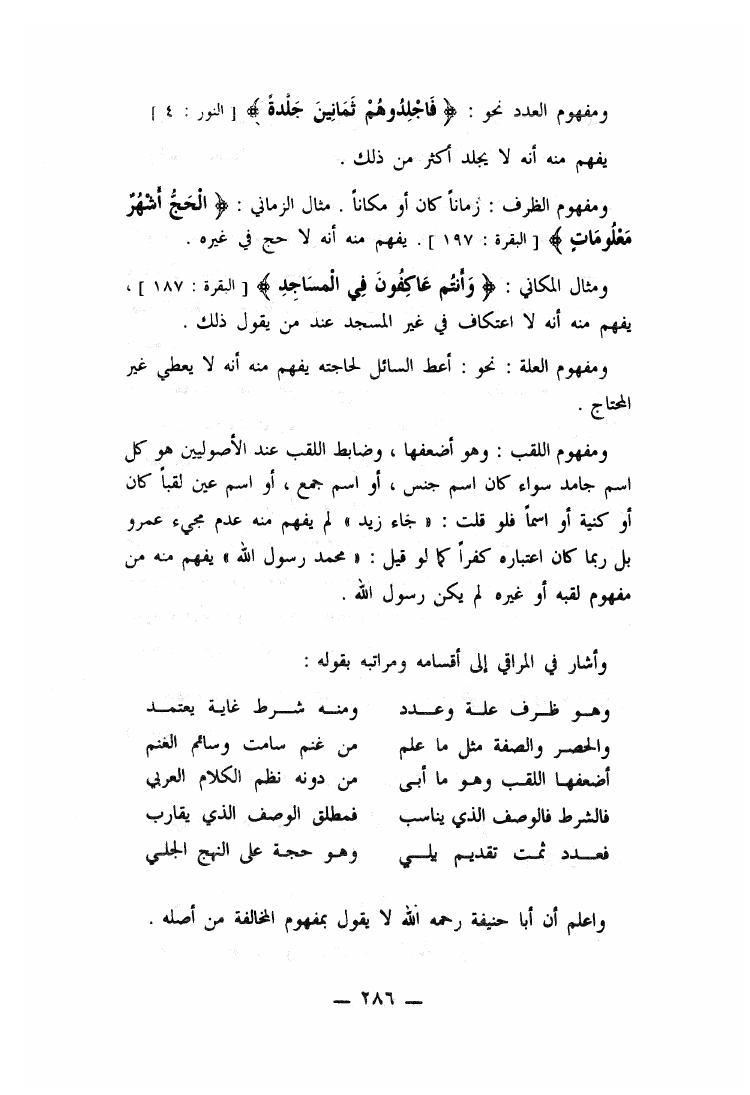 ومفهوم العدد نحو : ﴿ فَاجْلِدُوهُمْ ثَمَانِينَ جَلْدةً ﴾ [ النور : ٤ ]
يفهم منه أنه لا يجلد أكثر من ذلك .
ومفهوم الظرف : زماناً كان أو مكاناً . مثال الزماني : ﴿ الْحَجُّ أَشْهُرٌ
مَعْلُومَاتٍ ﴾ [ البقرة : ١٩٧ ] . يفهم منه أنه لا حج في غيره .
ومثال المكاني : ﴿ وَأَنتُم عَاكِفُونَ فِي الْمسَاجِدِ ﴾ [ البقرة : ١٨٧ ] ،
يفهم منه أنه لا اعتكاف في غير المسجد عند من يقول ذلك .
ومفهوم العلة : نحو : أعط السائل لحاجته يفهم منه أنه لا يعطي غير
المحتاج .
ومفهوم اللقب : وهو أضعفها ، وضابط اللقب عند الأصوليين هو كل
اسم جامد سواء كان اسم جنس ، أو اسم جمع ، أو اسم عين لقباً كان
أو كنية أو اسماً فلو قلت : « جَاء زيد » لم يفهم منه عدم مجيء عمرو
بل ربما كان اعتباره كفراً كما لو قيل : « محمد رسول الله » يفهم منه من
مفهوم لقبه أو غيره لم يكن رسول الله .
وأشار في المراقي إلى أقسامه ومراتبه بقوله :
وهـو ظـرف علـة وعـدد ومنـه شـرط غاية يعتمـد
والحصر والصفة مثل ما علم من غنم سامت وسائم الغنم
أضعفهـا اللقـب وهـو ما أبـى من دونه نظم الكلام العربي
فالشرط فالوصف الذي يناسب فمطلق الوصف الذي يقارب
فعـدد ثمـت تقديـم يلـي وهـو حجـة على النهج الجلـي
واعلم أن أبا حنيفة رحمه الله لا يقول بمفهوم المخالفة من أصله .
— ٢٨٦ —